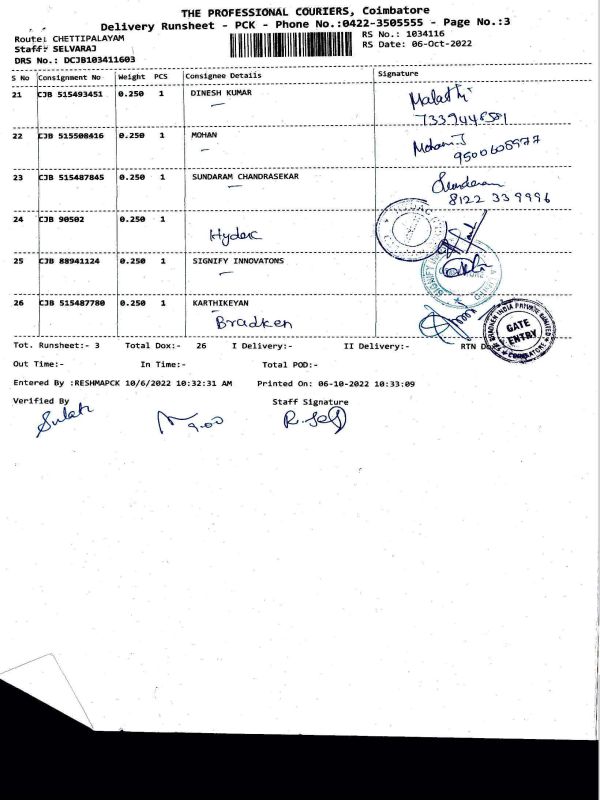 THE PROFESSIONAL COURIERS, Coimbatore
Delivery Runsheet - PCK - Phone No.:0422-3505555 - Page No.:3
Route: CHETTIPALAYAM
RS No.: 1034116
Staff: SELVARAJ
RS Date: 06-Oct-2022
DRS No.: DCJB103411603
S No Consignment No Weight PCS Consignee Details Signature
21 CJB 515493451 0.250 1 DINESH KUMAR Malathi
7339448581
22 CJB 515508416 0.250 1 MOHAN Mohan.J
9500605977
23 CJB 515487845 0.250 1 SUNDARAM CHANDRASEKAR Sundaram
8122 33 9996
24 CJB 90502 0.250 1
Hydac
HYDAC
25 CJB 88941124 0.250 1 SIGNIFY INNOVATONS
SIGNIFY
26 CJB 515487780 0.250 1 KARTHIKEYAN
Bradken
BRADKEN INDIA PRIVATE LIMITED
GATE
ENTRY
COIMBATORE
Tot. Runsheet:- 3 Total Dox:- 26 I Delivery:- II Delivery:- RTN
Out Time:- In Time:- Total POD:-
Entered By :RESHMAPCK 10/6/2022 10:32:31 AM Printed On: 06-10-2022 10:33:09
Verified By Staff Signature
9.00